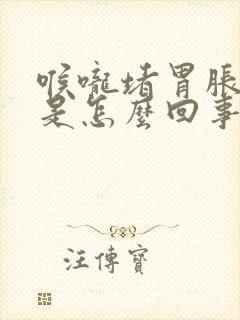 喉嚨堵胃脹
是怎麼回事
汪傳寶